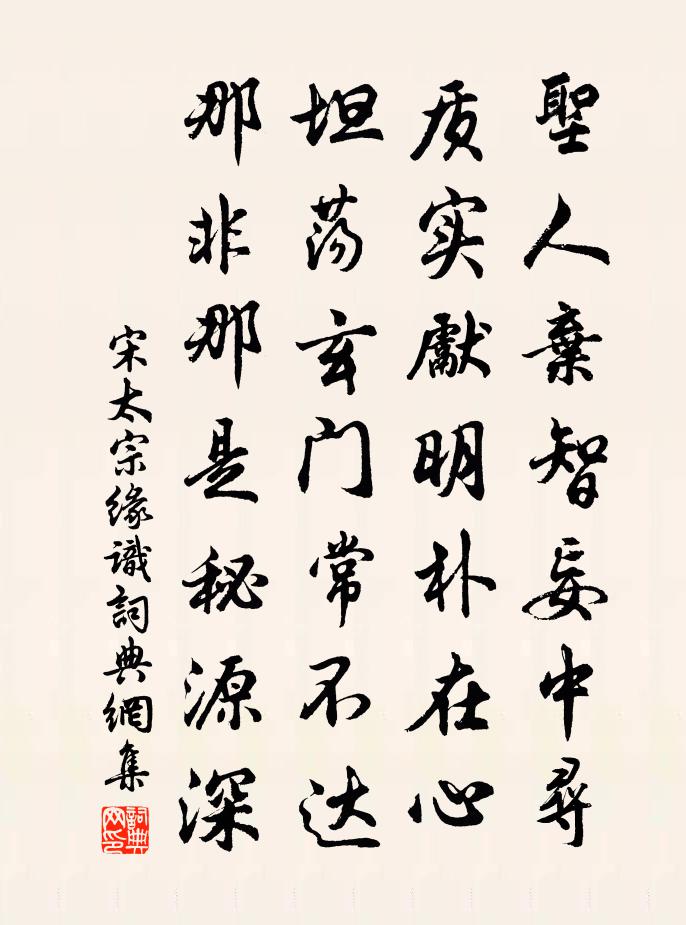 聖人棄智妄中尋
质实獻明朴在心
坦荡玄门常不达
那非那是秘源深
宋太宗缘識詞典網集
詞典
网印